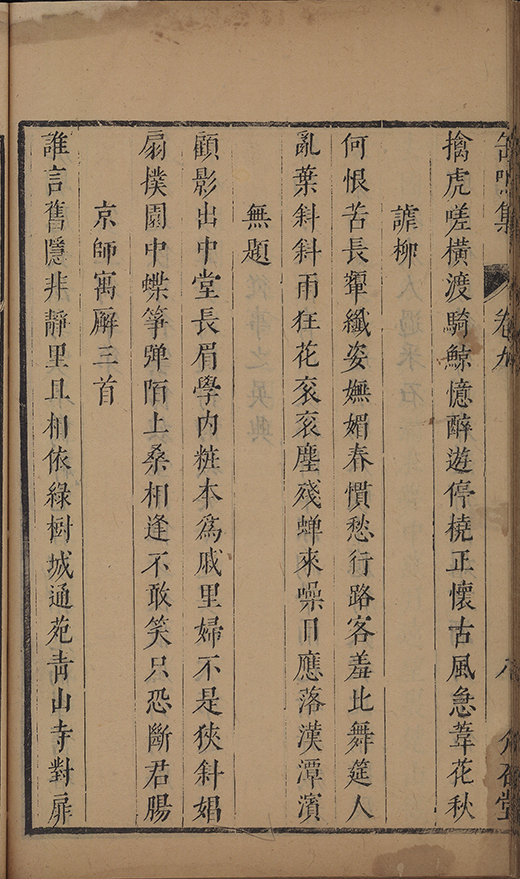 集 卷九 八
擒虎嗟橫渡騎鯨憶醉遊停橈正懷古風急葦花秋
謔柳
何恨苦長顰纖姿嫵媚春慣愁行路客羞比舞筵人
亂葉斜斜雨狂花衮衮塵殘蟬來噪日應落漢潭濱
無題
顧影出中堂長眉學內粧本為戚里婦不是狹斜娼
扇撲園中蝶箏彈陌上桑相逢不敢笑只恐斷君腸
京師寓廨三首
誰言舊隱非靜里且相依綠樹城通苑青山寺對扉